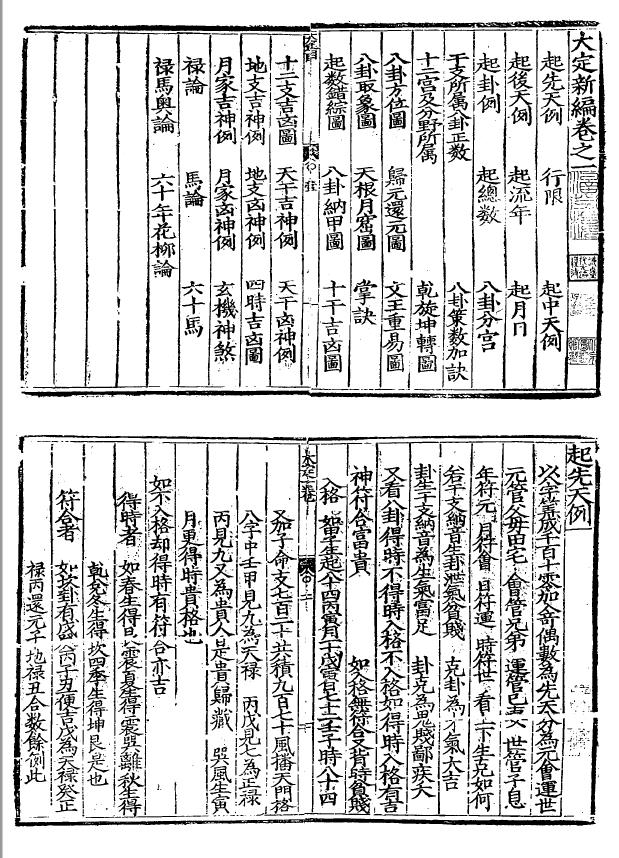 大定新編卷之一
起先天例 行限 起中天例
起後天例 起流年 起月日
起卦例 起總數 八卦分宮
干支所属八卦正数 八卦策数加訣
十二宮及分野所属 乾旋坤轉圖
八卦方位圖 歸元還元圖 文王重易圖
八卦取象圖 天根月窟圖 掌訣
起数錯綜圖 八卦納甲圖 十干吉凶圖
十二支吉凶圖 天干吉神例 天干凶神例
地支吉神例 地支凶神例 四時吉凶圖
月家吉神例 月家凶神例 玄機神煞
禄論 馬論 六十馬
禄馬輿論 六十年花柳論
起先天例
以年筭成千百十零加今奇偶數為先天分為元會運世
元管父母田宅 會管兄弟 運管己 世管子息
年符元 月符會 日符運 時符世 看上下生克如何
若干支納音生卦泄氣貧賤 克卦為 氣大吉
卦生干支納音為生氣富足 卦克為鬼賤鄙疾夭
又看八卦得時不得時入格不入格如得時入格有吉
神符合富貴 如入格無符合又背時貧賤
入格 如甲子生起八十四丙寅月 十戊寅日 十二壬子時八十四
又加子命支七百二十共積九百七十風播天門格
八字中壬甲見九為天禄 丙戊見七為正禄
丙見九又為貴人是貴歸藏 巽風生寅
月更得時貴格也
如不入格却得時有符合亦吉
得時者 如春生得 震夏生得震巽離秋生得
乾兌冬生得坎四季生得坤艮是也
符合者 如坎卦有 丙丁丑便吉戊為天禄癸正
禄丙還元子地禄丑合数餘倣此